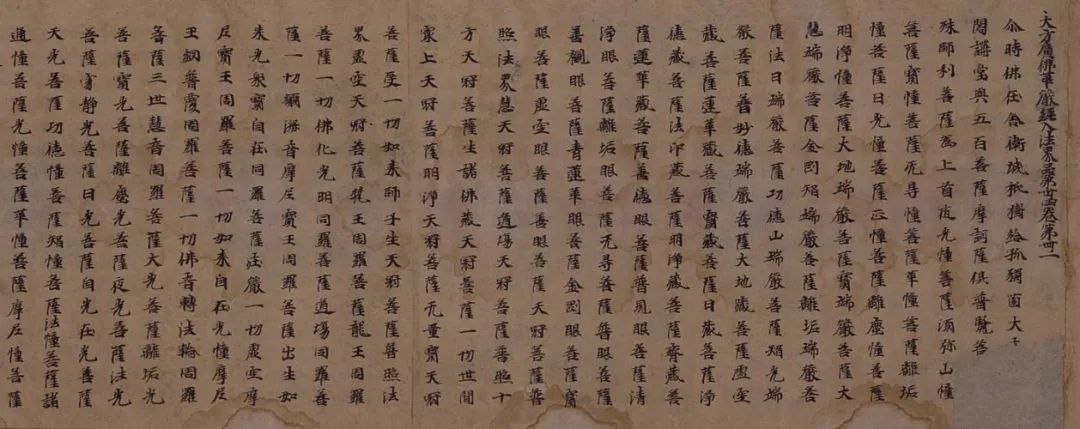 大方廣佛華嚴經入法界品第卅四卷第卌一
尒時佛在舍衛城祇樹給孤獨園大
閣講堂與五百菩薩摩訶薩俱普賢菩
殊師利菩薩為上首夜光幢菩薩須弥山幢
菩薩寶幢菩薩无㝵幢菩薩華幢菩薩離垢
幢菩薩日光幢菩薩正幢菩薩離塵幢菩薩
明淨幢菩薩大地端嚴菩薩寶端嚴菩薩大
慧端嚴菩薩金剛智端嚴菩薩離垢端嚴菩
薩法日端嚴菩薩功德山端嚴菩薩智光端
嚴菩薩普妙德端嚴菩薩大地藏菩薩虛空
藏菩薩蓮華藏菩薩寶藏菩薩日藏菩薩淨
德藏菩薩法印藏菩薩明淨藏菩薩齊藏菩
薩蓮華藏菩薩善德眼菩薩普見眼菩薩清
淨眼菩薩離垢眼菩薩无㝵眼菩薩普眼菩薩
善觀眼菩薩青蓮華眼菩薩金剛眼菩薩寶
眼菩薩虛空眼菩薩善眼菩薩天冠菩薩普
照法界慧天冠菩薩道場天冠菩薩普照十
方天冠菩薩生諸佛藏天冠菩薩一切世間
冣上天冠菩薩明淨天冠菩薩无量寶天冠
菩薩受一切如来師子坐天冠菩薩普照法
界虛空天冠菩薩梵王周羅菩薩龍王周羅
菩薩一切佛化光明周羅菩薩道場周羅菩
薩一切願海音摩尼寶王周羅菩薩出生如
来光衆寶自在周羅菩薩莊嚴一切虛空摩
尼寶王周羅菩薩一切如来自在光幢摩尼
王網普覆周羅菩薩一切佛音轉法輪周羅
菩薩三世慧音周羅菩薩大光菩薩離垢光
菩薩寶光菩薩離塵光菩薩夜光菩薩法光
菩薩寂靜光菩薩日光菩薩自光在光菩薩
天光菩薩功德幢菩薩智幢菩薩法幢菩薩諸
通幢菩薩光幢菩薩華幢菩薩摩尼幢菩薩